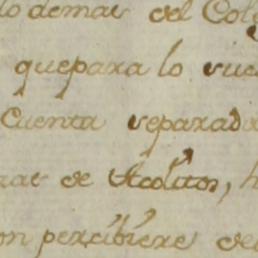 lo demas del Cole
quepara lo suc
Cuenta separada
rar de Acolitos,
on percibiere de